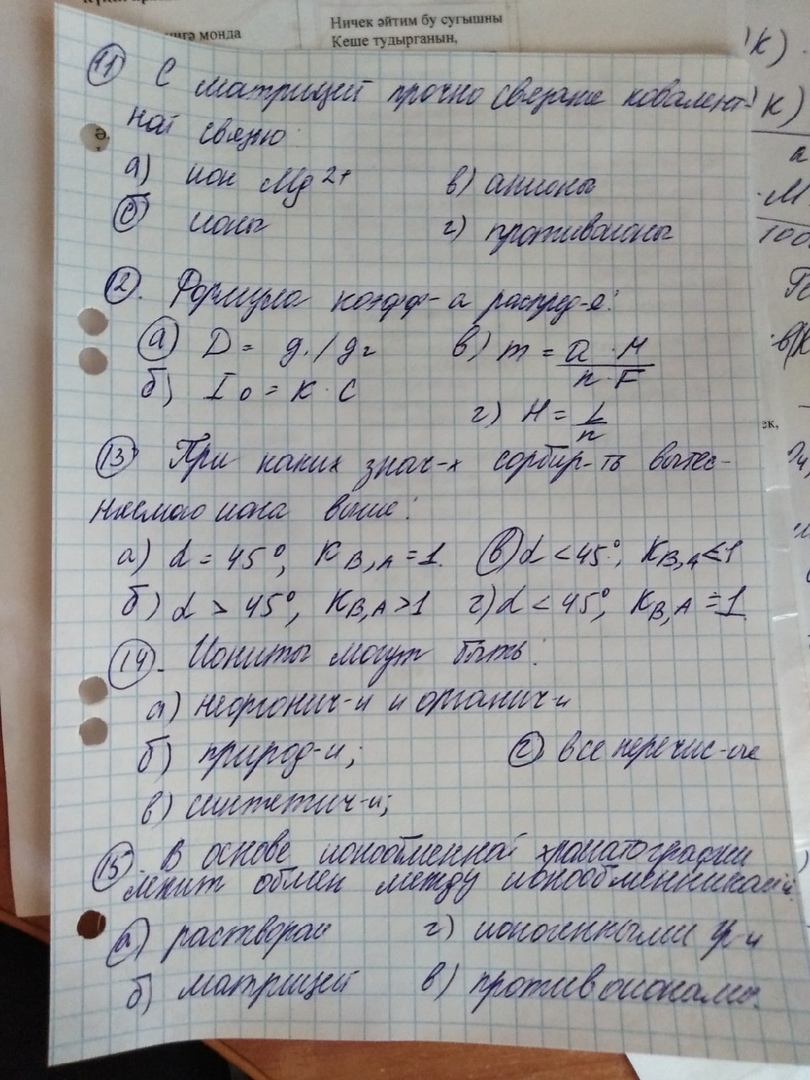 Ничек әйтим бу сугышны
Кеше тудырганын,
монда
11 С матрицей прочно связаны ковалент-
ной связью:
а) ион Mg2+ в) анионы
б) ионы г) противоионы
12. Формула коэфф-а распред-я:
а) D = g1/g2 в) m = a · M / n · F
б) I0 = K · C
г) H = L/n
13 При каких знач-х сорбир-ть вытес-
няемого иона выше:
а) α = 45°, KB,A = 1. в) α < 45°, KB,A ≤ 1
б) α > 45°, KB,A > 1 г) α < 45°, KB,A = 1.
14. Иониты могут быть:
а) неорганич-и и органич-и
б) природ-и; г) все перечис-ые
в) синтетич-и;
15. В основе ионообменной хроматографии
лежит обмен между ионообменниками и:
а) раствором г) ионогенными гр-и
б) матрицей в) противоионами.
К)
К)
а
М
100